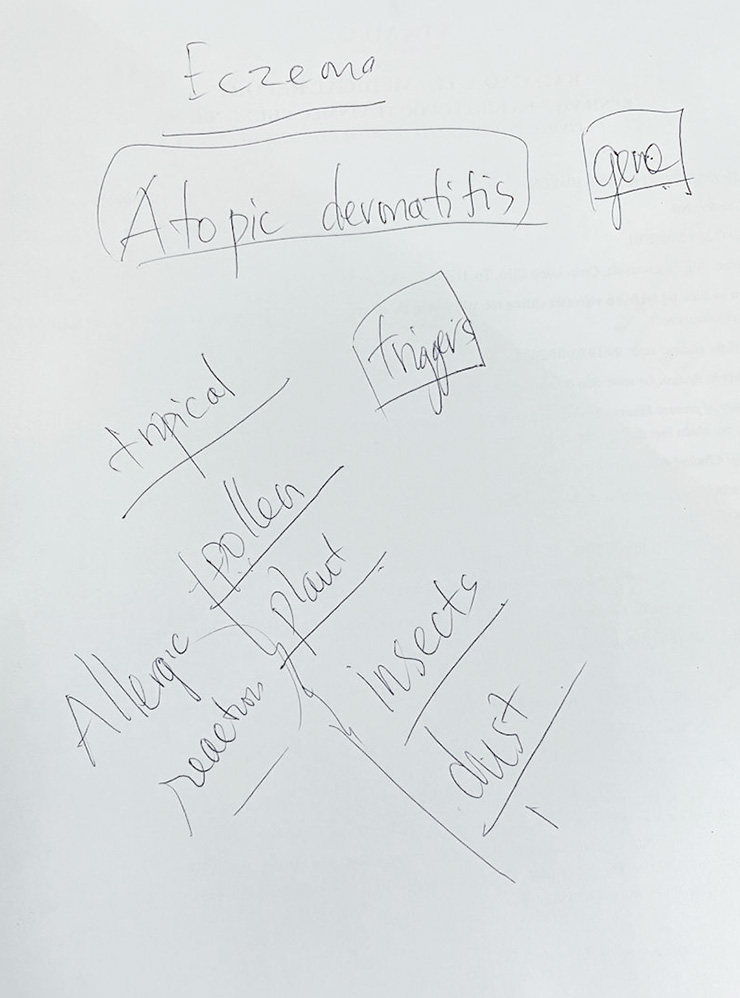 Eczema
Atopic dermatitis
gene
triggers
tropical
pollen
plant
Allergic
reaction
insects
dust